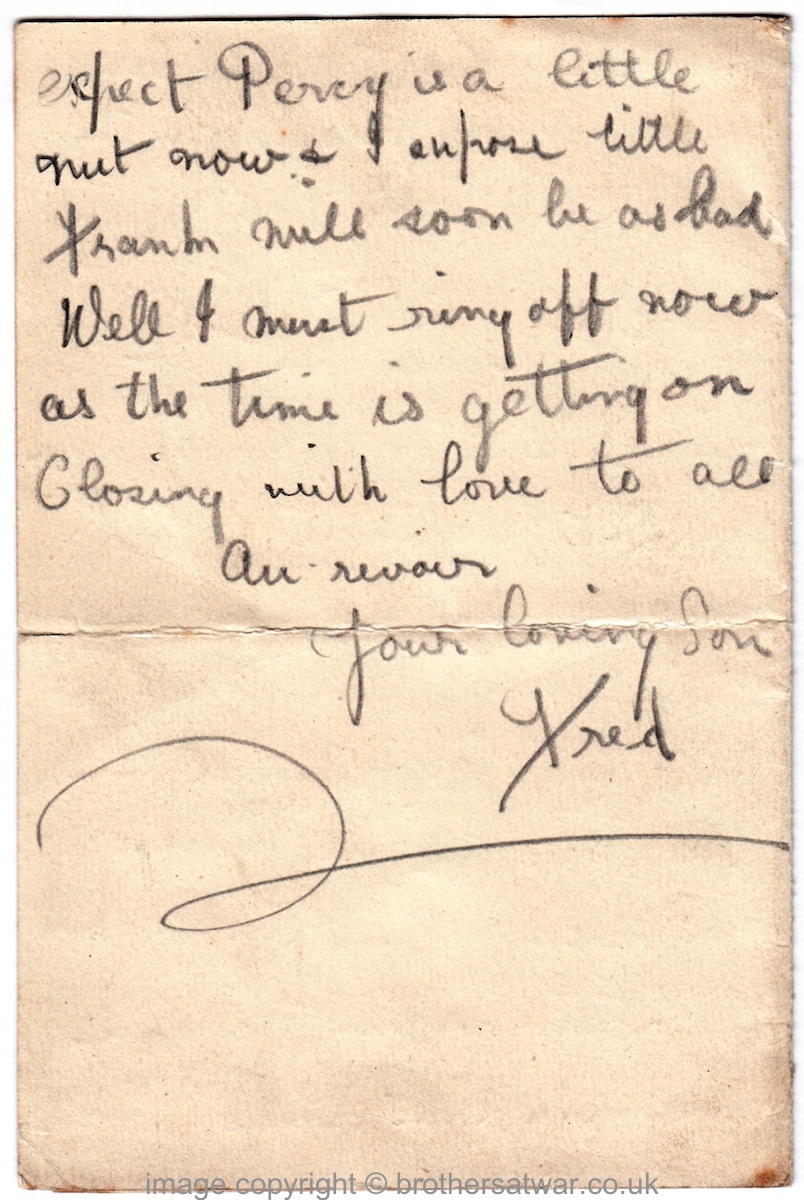 expect Percy is a little
nut now & I supose little
Frank will soon be as bad
Well I must ring off now
as the time is getting on
Closing with love to all
Au-revoir
Your loving Son
Fred
image copyright © brothersatwar.co.uk